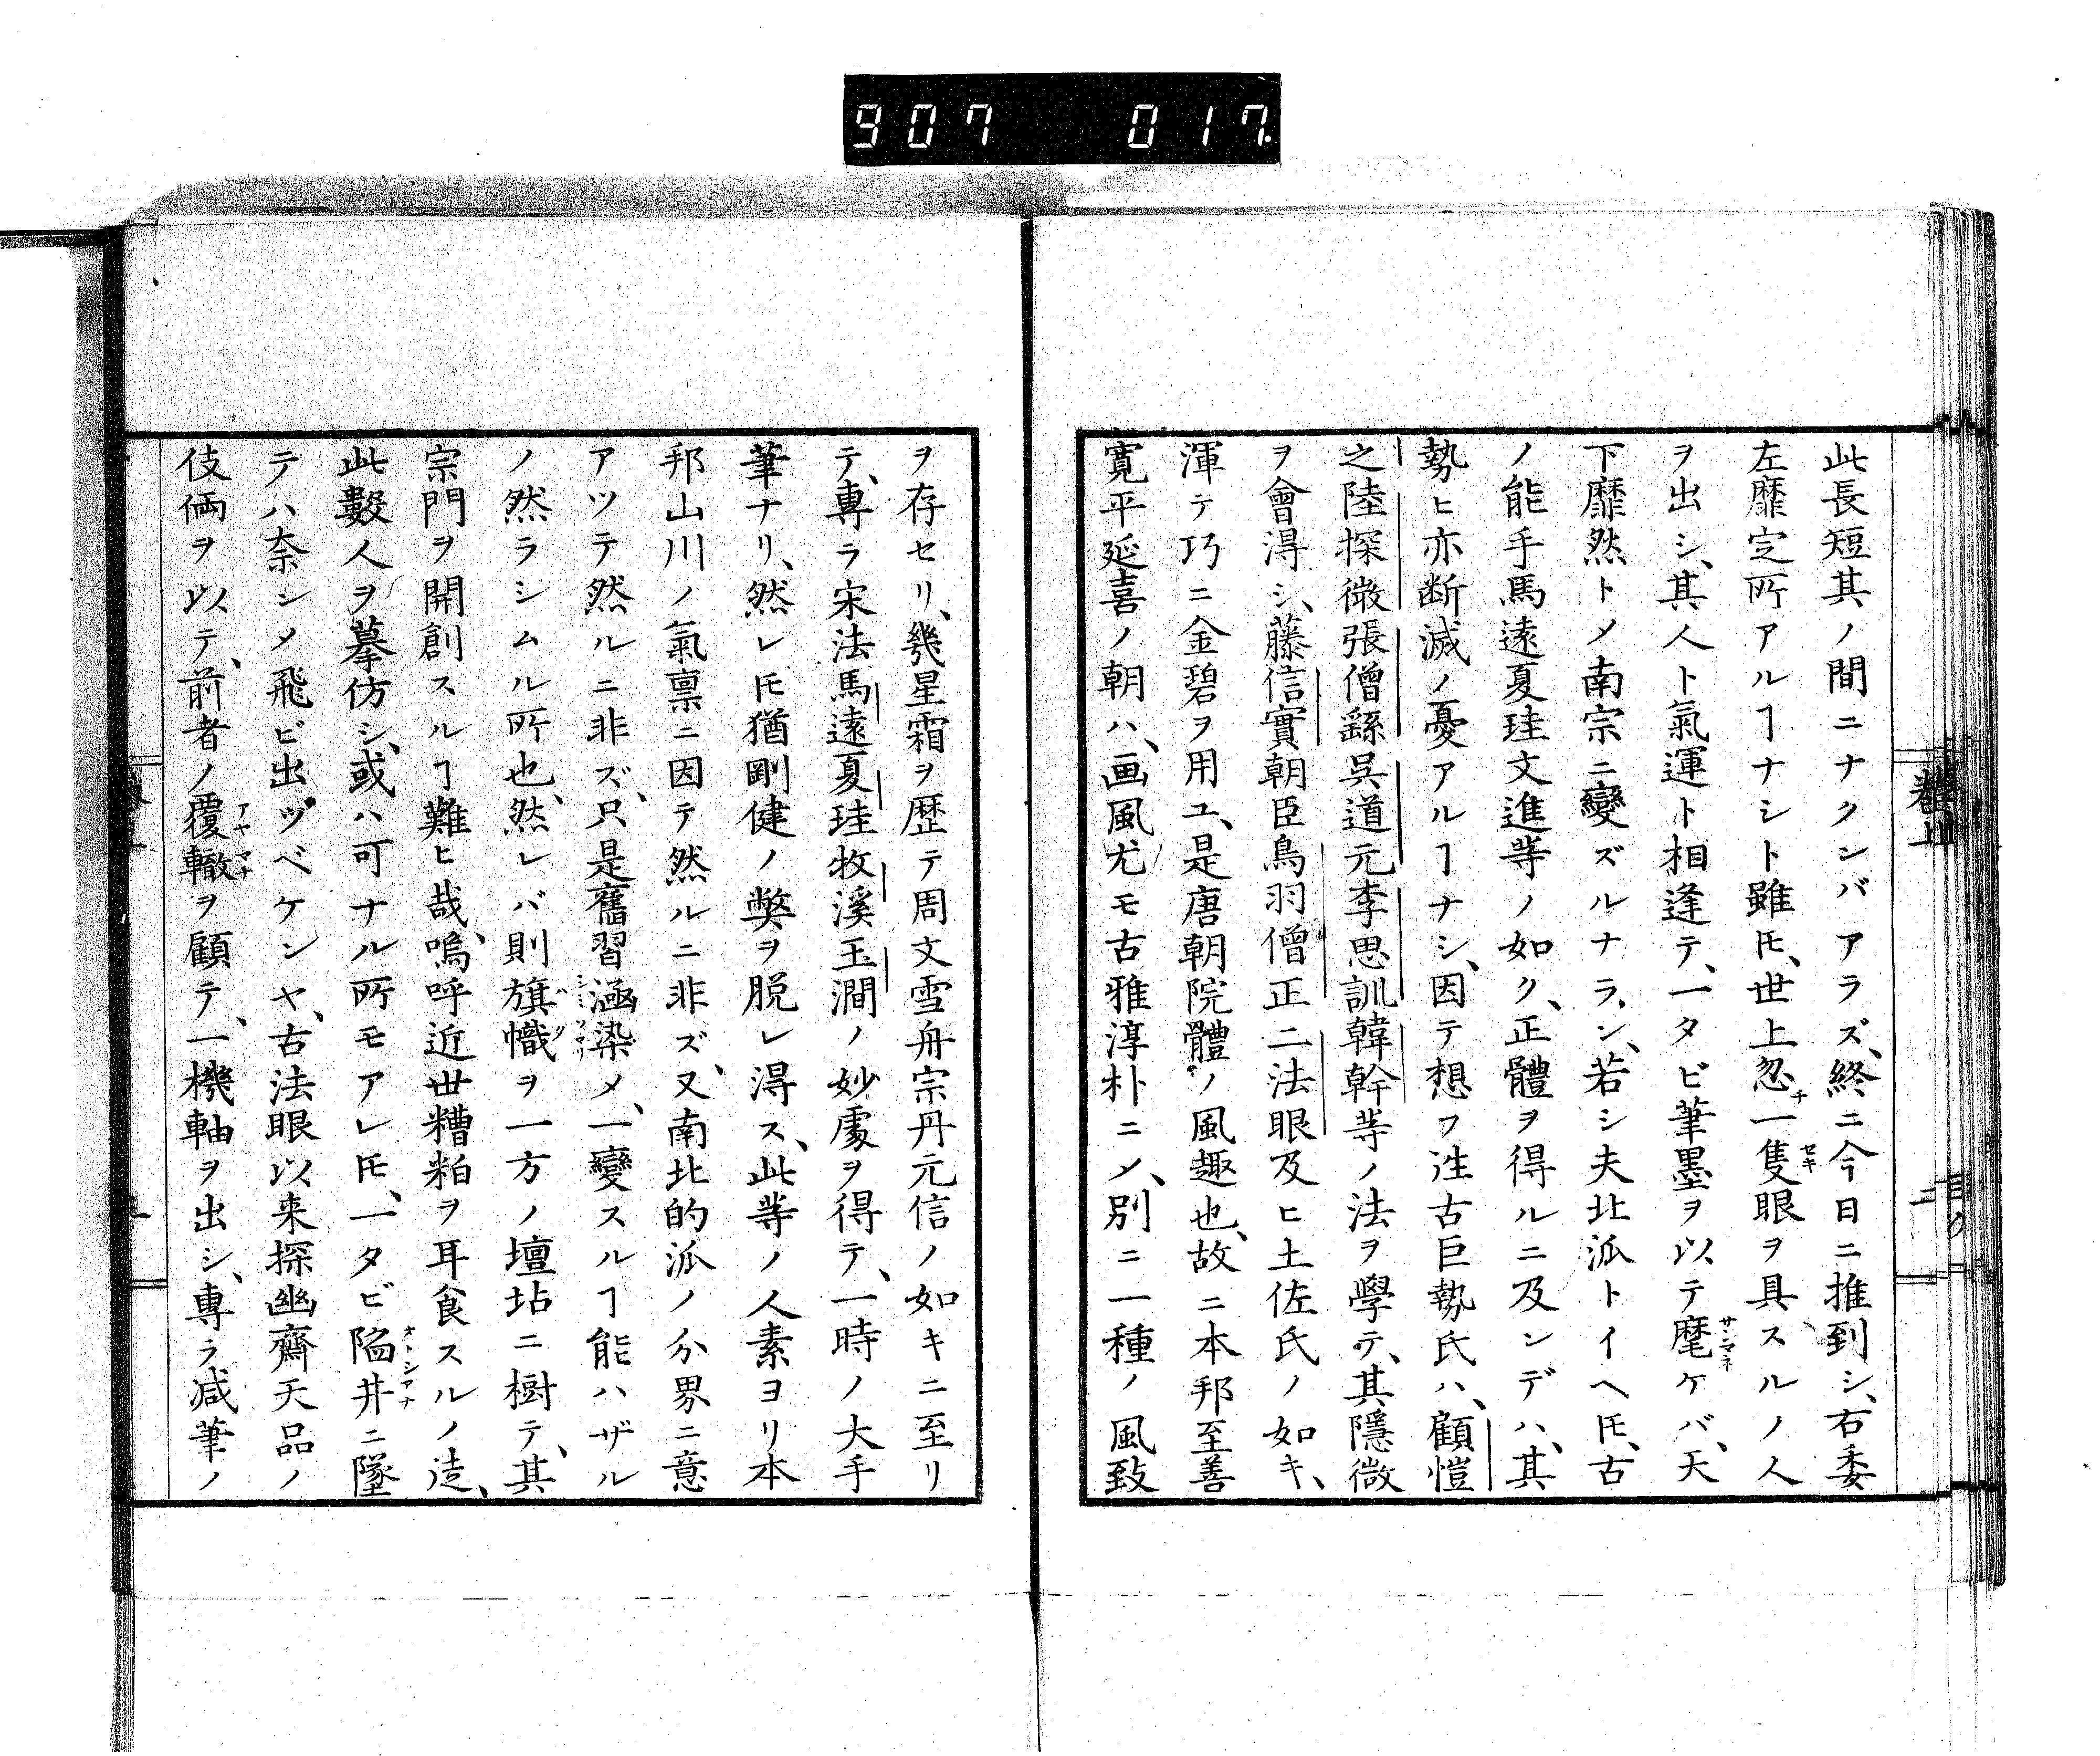 907 017
此長短其ノ間ニナクンバアラズ、終ニ今日ニ推到シ、右委
左靡定所アルヿナシト雖𪜈、世上忽チ一隻セキ眼ヲ具スルノ人
ヲ出シ、其人ト氣運ト相逢テ、一タビ筆墨ヲ以テ麾サシマネケバ、天
下靡然トメ南宗ニ變ズルナラン、若シ夫北派トイヘ𪜈、古
ノ能手馬遠夏珪文進等ノ如ク、正體ヲ得ルニ及ンデハ、其
勢ヒ亦断滅ノ憂アルヿナシ、因テ想フ徃古巨勢氏ハ、顧愷
之陸探微張僧繇呉道元李思訓韓幹等ノ法ヲ學テ、其隱微
ヲ會得シ、藤信實朝臣鳥羽僧正二法眼及ヒ土佐氏ノ如キ、
渾テ巧ニ金碧ヲ用ユ、是唐朝院體ノ風趣也、故ニ本邦至善
寛平延喜ノ朝ハ、画風尤モ古雅淳朴ニメ、別ニ一種ノ風致
ヲ存セリ、幾星霜ヲ歴テ周文雪舟宗丹元信ノ如キニ至リ
テ、専ラ宋法馬遠夏珪牧溪玉澗ノ妙處ヲ得テ、一時ノ大手
筆ナリ、然レ𪜈猶剛健ノ弊ヲ脱レ得ス、此等ノ人素ヨリ本
邦山川ノ氣禀ニ因テ然ルニ非ズ、又南北的派ノ分界ニ意
アツテ然ルニ非ズ、只是舊習涵染メ、一變スルヿ能ハザル
ノ然ラシムル所也、然レバ則旗幟ヲ一方ノ壇坫ニ樹テ、其
宗門ヲ開創スルヿ難ヒ哉、嗚呼近世糟粕ヲ耳食スルノ徒、
此數人ヲ摹仿シ、或ハ可ナル所モアレ𪜈、一タビ陥井オトシアナニ墜
テハ奈ンメ飛ビ出ヅベケンヤ、古法眼以来探幽齋天品ノ
伎倆ヲ以テ、前者ノ覆轍アヤマチヲ顧テ、一機軸ヲ出シ、専ラ減筆ノ